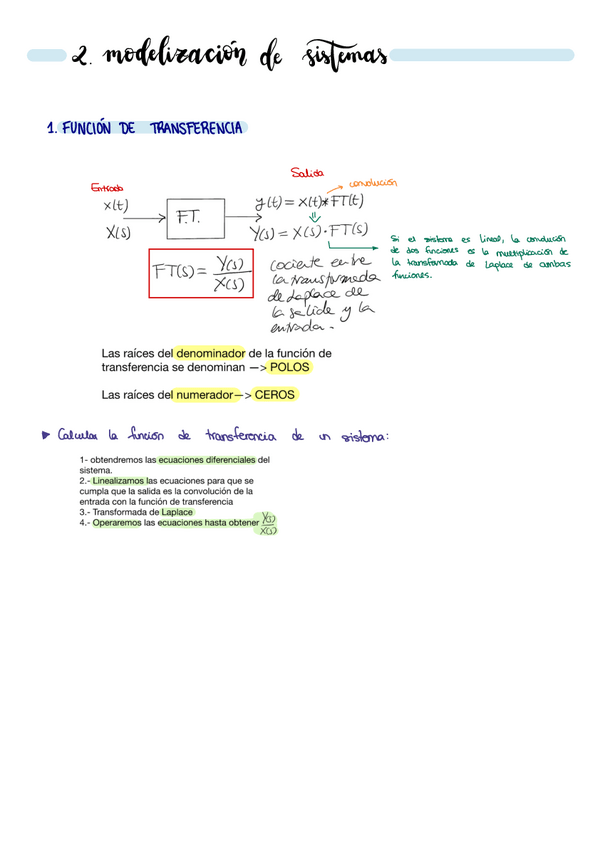 2. modelización de sistemas
1. FUNCIÓN DE TRANSFERENCIA
Salida
convolución
Entrada
x(t)
F.T.
y(t) = x(t)*FT(t)
X(s)
Y(s) = X(s)·FT(s)
Si el sistema es lineal, la convolución
de dos funciones es la multiplicación de
la transformada de Laplace de ambas
funciones.
FT(s) = Y(s)/X(s)
cociente entre
la transformada
de Laplace de
la salida y la
entrada.
Las raíces del denominador de la función de
transferencia se denominan —> POLOS
Las raíces del numerador—> CEROS
▶ Calcular la función de transferencia de un sistema:
1- obtendremos las ecuaciones diferenciales del
sistema.
2.- Linealizamos las ecuaciones para que se
cumpla que la salida es la convolución de la
entrada con la función de transferencia
3.- Transformada de Laplace
4.- Operaremos las ecuaciones hasta obtener Y(s)/X(s)